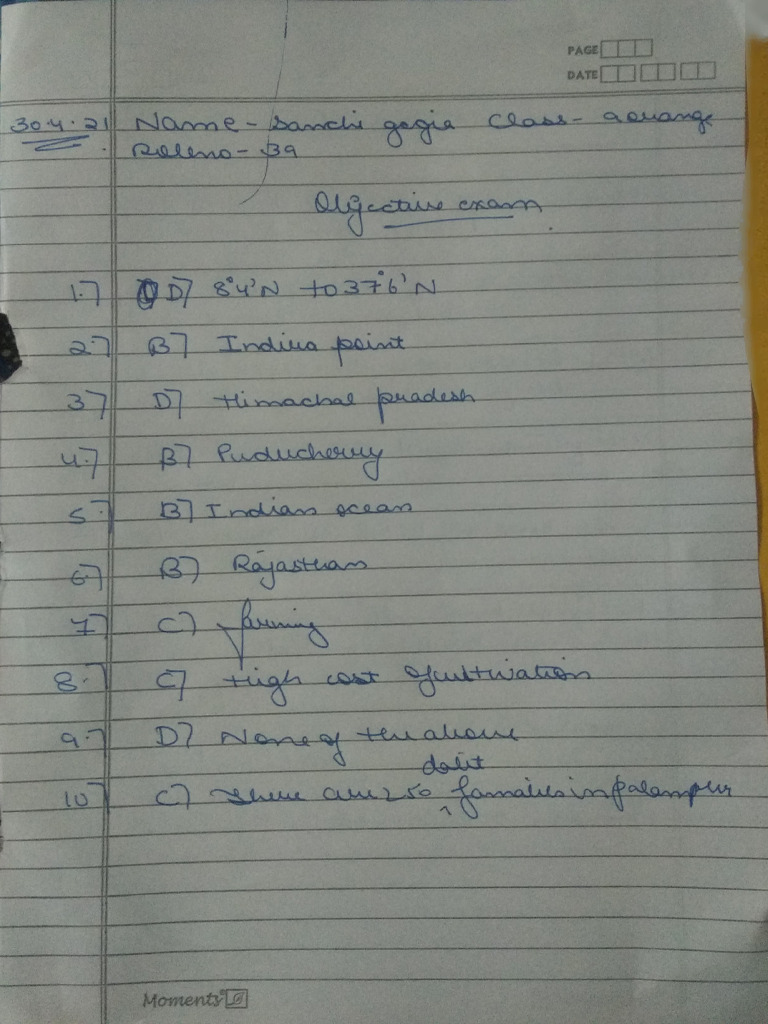 PAGE
DATE
30.4.21 Name - Sanchi gogia Class - 9 orange
Rollno - 39
Objective exam
1.7 D7 8°4'N to 37°6'N
2.7 B7 Indira point
37 D7 Himachal pradesh
4.7 B7 Puducherry
5.7 B7 Indian ocean
6.7 B7 Rajasthan
77 C7 farming
8.7 C7 High cost of cultivation
9.7 D7 None of the above
dalit
107 C7 There are 250 ^ families in palampur
Moments